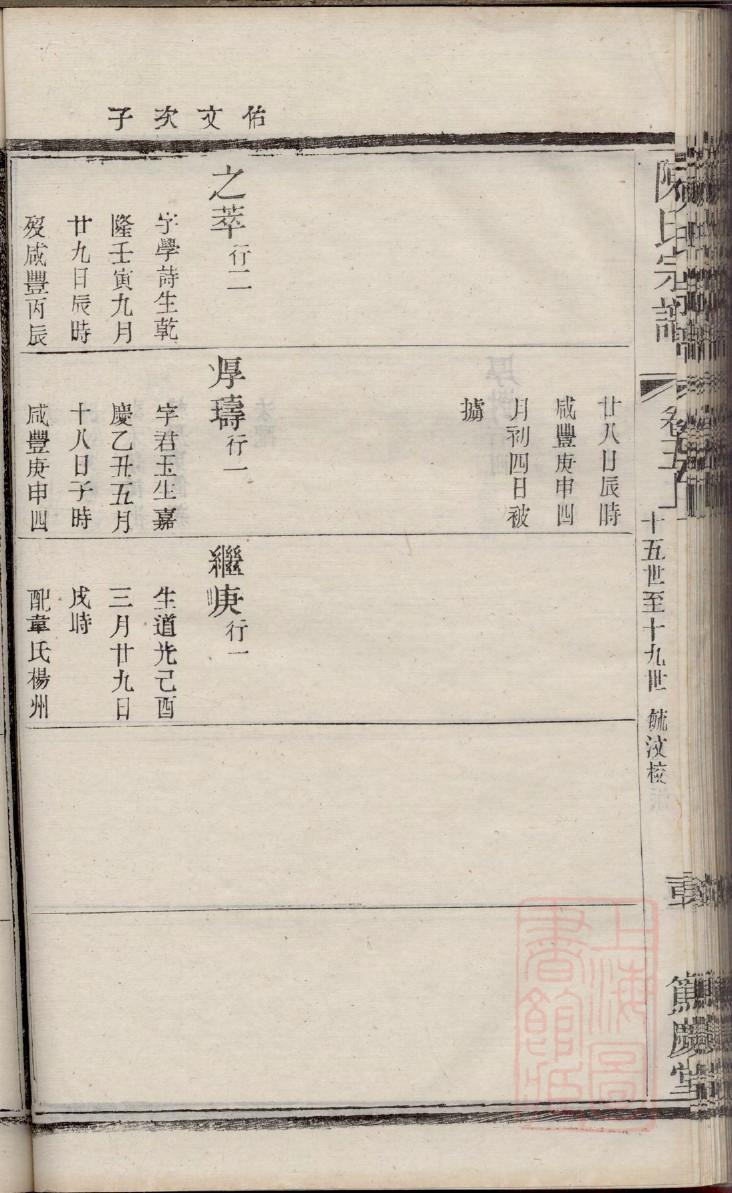 陳氏宗譜
卷五上
十五世至十九世
毓汶校
篤慶堂
佑文次子
之萃行二
字學詩生乾
隆壬寅九月
廿九日辰時
歿咸豐丙辰
廿八日辰時
咸豐庚申四
月初四日被
擄
厚璹行一
字君玉生嘉
慶乙丑五月
十八日子時
咸豐庚申四
繼庚行一
生道光己酉
三月廿九日
戌時
配韋氏楊州
上海圖書館藏